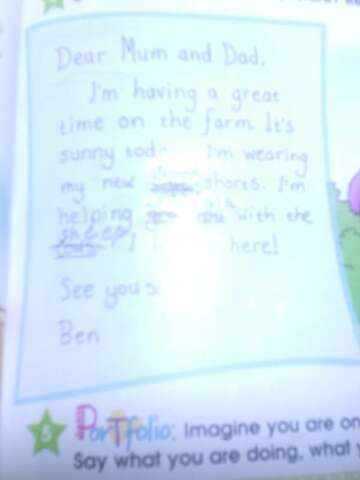 Dear Mum and Dad,
I'm having a great
time on the farm. It's
sunny I'm wearing
my new shorts. I'm
helping with the
sheep! here!
See you
Ben
5 Portfolio: Imagine you are on
Say what you are doing, what